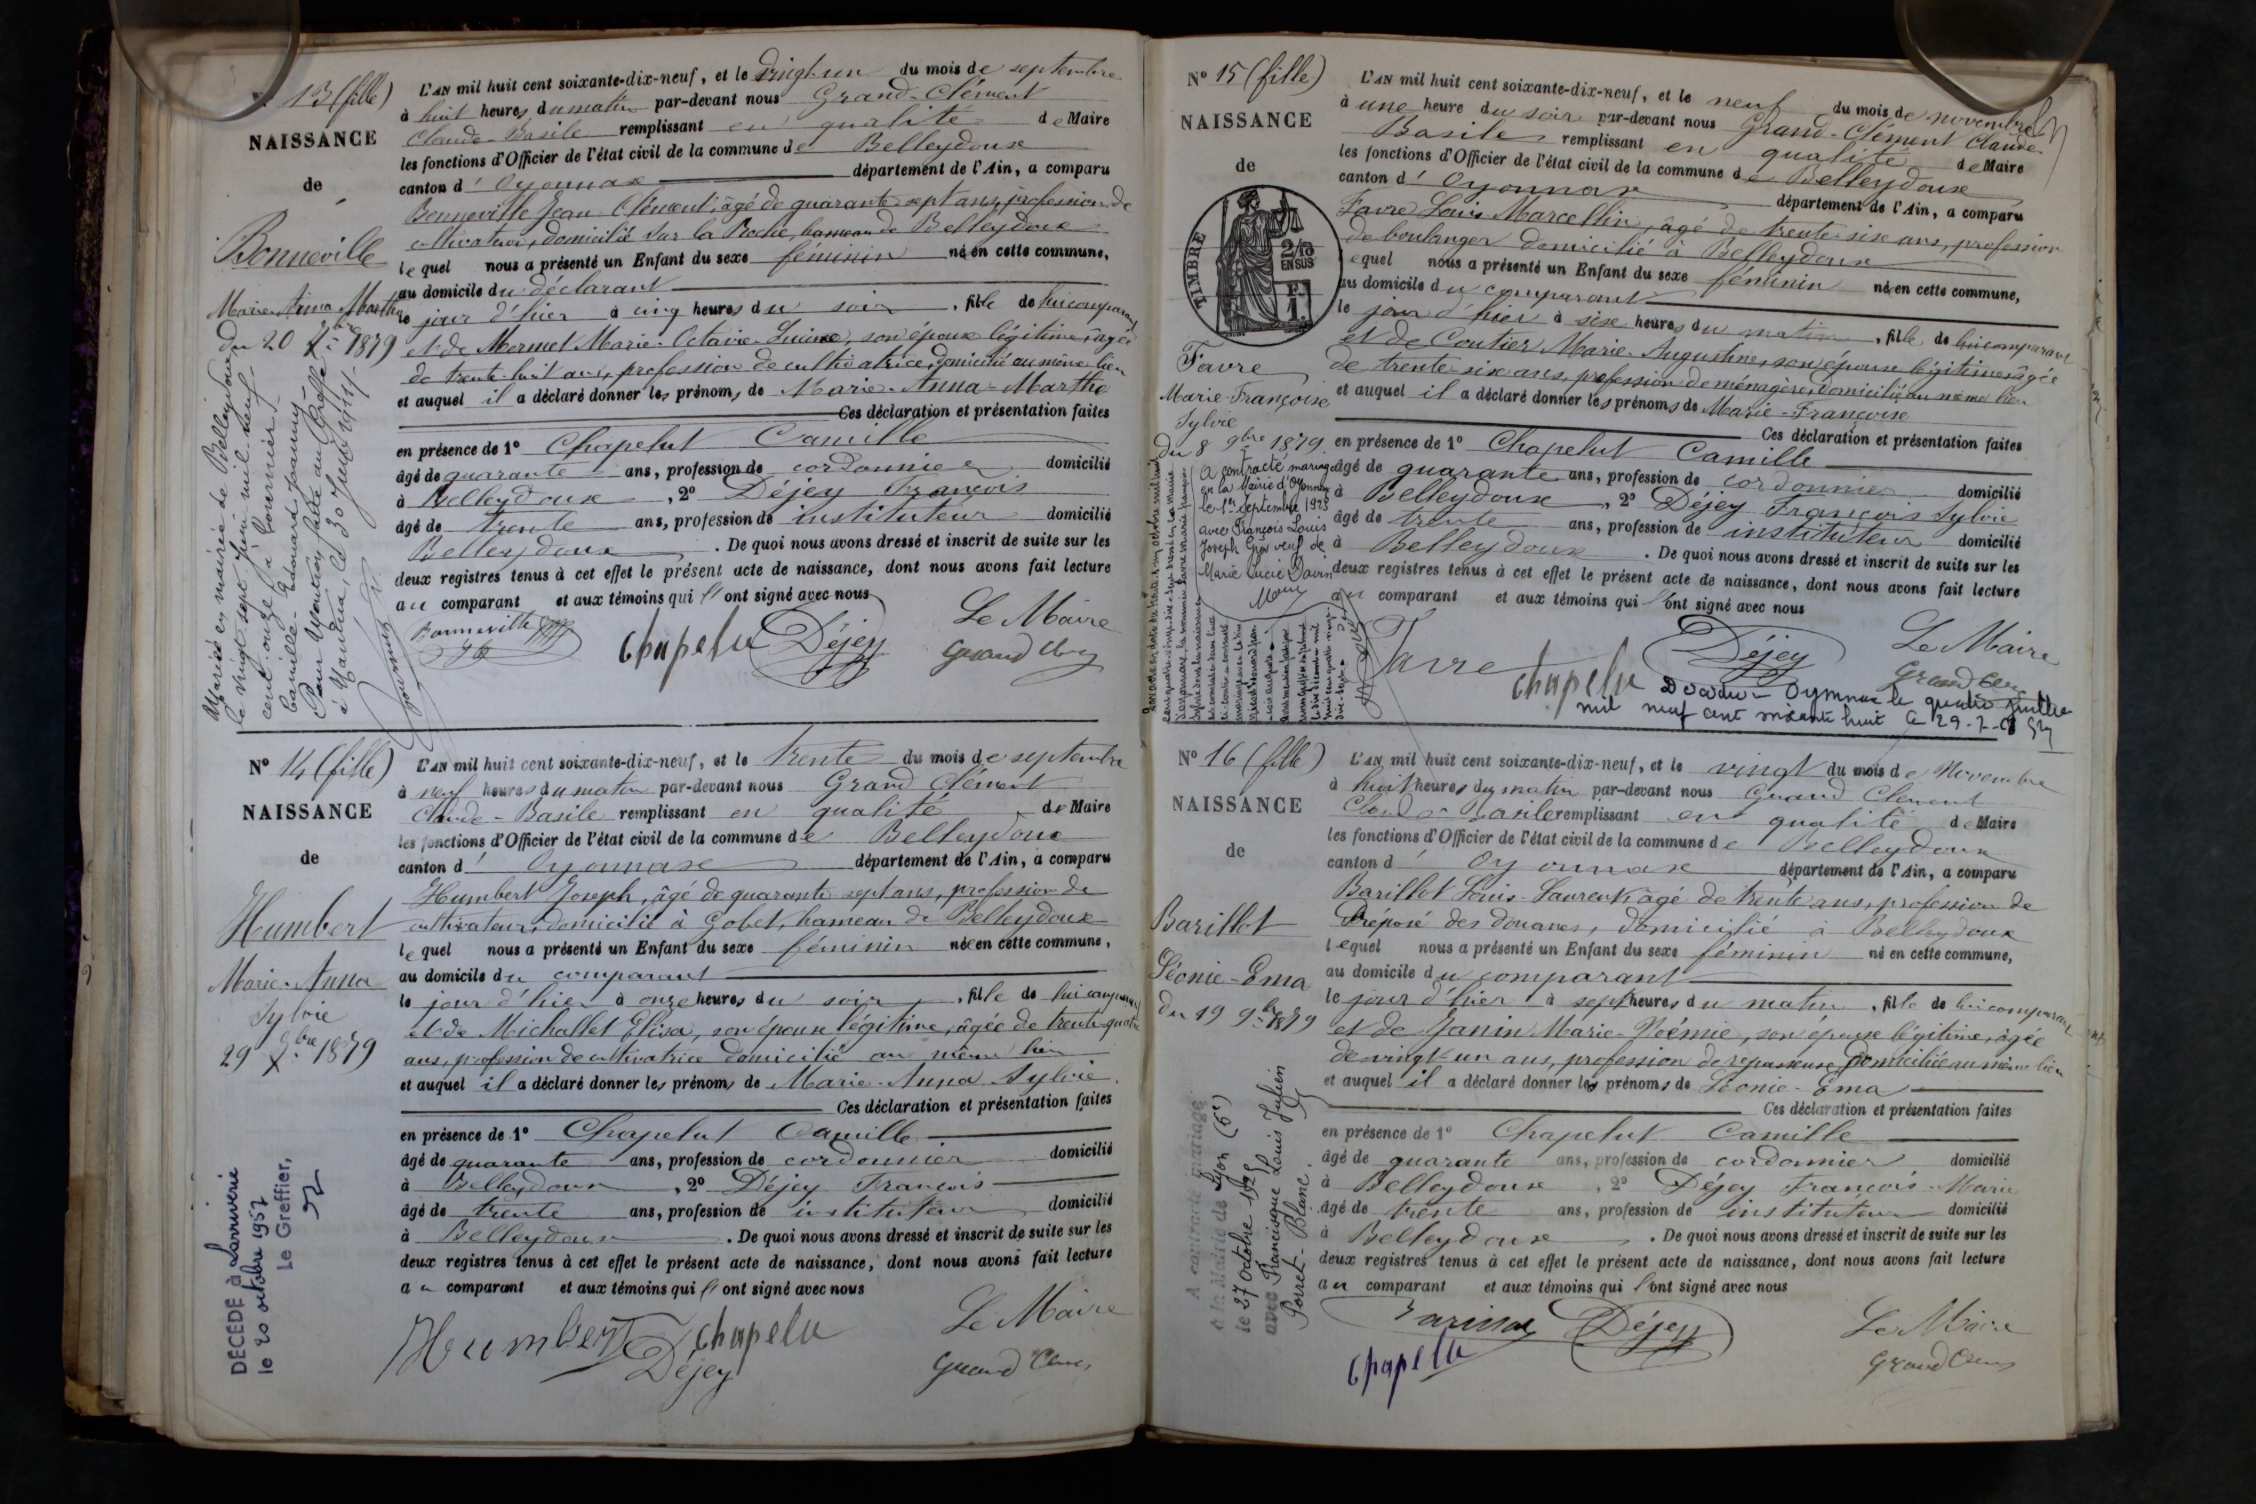 13 (fille)
NAISSANCE
de
Bonneville
Marie Anna Marthe
du 20 7bre 1879
Mariée en mairie de Belleydoux
le vingt sept juin mil neuf
cent onze à
Camille Edouard
Pour Mention faite au Greffe
à Nantua, le 30 Juin 1911
L'AN mil huit cent soixante-dix-neuf, et le vingt-un du mois de septembre
à huit heures du matin par-devant nous Grand-Clément
Claude-Basile remplissant en qualité de Maire
les fonctions d'Officier de l'état civil de la commune de Belleydoux
canton d'Oyonnax département de l'Ain, a comparu
Bonneville Jean-Clément, âgé de quarante sept ans, profession de
cultivateur, domicilié Sur la Roche, hameau de Belleydoux
lequel nous a présenté un Enfant du sexe féminin né en cette commune,
au domicile du déclarant
le jour d'hier à cinq heures du soir, fille de lui comparant
et de Mermet Marie-Octavie, son épouse légitime, âgée
de trente huit ans, profession de cultivatrice, domicilié au même lieu
et auquel il a déclaré donner les prénoms de Marie-Anna-Marthe
Ces déclaration et présentation faites
en présence de 1º Chapelut Camille
âgé de quarante ans, profession de cordonnier domicilié
à Belleydoux, 2º Déjey François
âgé de trente ans, profession de instituteur domicilié
Belleydoux. De quoi nous avons dressé et inscrit de suite sur les
deux registres tenus à cet effet le présent acte de naissance, dont nous avons fait lecture
au comparant et aux témoins qui l'ont signé avec nous
Bonneville
Chapelu
Déjey
Le Maire
Grand Clém
Nº 14 (fille)
NAISSANCE
de
Humbert
Marie-Anna
Sylvie
29 7bre 1879
DÉCÉDÉ à Larrivoire
le 20 octobre 1957
Le Greffier,
L'AN mil huit cent soixante-dix-neuf, et le trente du mois de septembre
à neuf heures du matin par-devant nous Grand Clément
Claude-Basile remplissant en qualité de Maire
les fonctions d'Officier de l'état civil de la commune de Belleydoux
canton d'Oyonnax département de l'Ain, a comparu
Humbert Joseph, âgé de quarante sept ans, profession de
cultivateur, domicilié à Gobet, hameau de Belleydoux
lequel nous a présenté un Enfant du sexe féminin née en cette commune,
au domicile du comparant
le jour d'hier à onze heures du soir, fille de lui comparant
et de Michallet Elisa, son épouse légitime, âgée de trente quatre
ans, profession de cultivatrice domicilié au même lieu
et auquel il a déclaré donner les prénoms de Marie-Anna Sylvie
Ces déclaration et présentation faites
en présence de 1º Chapelut Camille
âgé de quarante ans, profession de cordonnier domicilié
à Belleydoux, 2º Déjey François
âgé de trente ans, profession de instituteur domicilié
à Belleydoux. De quoi nous avons dressé et inscrit de suite sur les
deux registres tenus à cet effet le présent acte de naissance, dont nous avons fait lecture
au comparant et aux témoins qui l'ont signé avec nous
Humbert
Chapelu
Déjey
Le Maire
Grand Clém
Nº 15 (fille)
NAISSANCE
de
TIMBRE
2/10
EN SUS
Favre
Marie-Françoise
Sylvie
Du 8 9bre 1879
A contracté mariage
en la Mairie d'Oyonnax
le 1er Septembre 1923
avec François Louis
Joseph Gros veuf de
Marie Lucie
L'AN mil huit cent soixante-dix-neuf, et le neuf du mois de novembre
à une heure du soir par-devant nous Grand-Clément Claude
Basile remplissant en qualité de Maire
les fonctions d'Officier de l'état civil de la commune de Belleydoux
canton d'Oyonnax département de l'Ain, a comparu
Favre Louis Marcellin, âgé de trente-six ans, profession
de boulanger domicilié à Belleydoux
lequel nous a présenté un Enfant du sexe féminin née en cette commune,
au domicile du comparant
le jour d'hier à six heures du matin, fille de lui comparant
et de Coutier Marie-Augustine, son épouse légitime âgée
de trente-six ans, profession de ménagère, domicilié au même lieu
et auquel il a déclaré donner les prénoms de Marie-Françoise
Ces déclaration et présentation faites
en présence de 1º Chapelut Camille
âgé de quarante ans, profession de cordonnier domicilié
à Belleydoux, 2º Déjey François Sylvie
âgé de trente ans, profession de instituteur domicilié
à Belleydoux. De quoi nous avons dressé et inscrit de suite sur les
deux registres tenus à cet effet le présent acte de naissance, dont nous avons fait lecture
au comparant et aux témoins qui l'ont signé avec nous
Favre
Chapelu
Déjey
Le Maire
Grand Clém
Décédée Oyonnax le quatre juillet
mil neuf cent soixante huit
Nº 16 (fille)
NAISSANCE
de
Barillot
Léonie-Ema
du 19 9bre 1879
A contracté mariage
à la Mairie de Lyon (6e)
le 27 octobre 1925
avec Francisque Louis Julien
Perret-Blanc.
L'AN mil huit cent soixante-dix-neuf, et le vingt du mois de Novembre
à huit heures du matin par-devant nous Grand Clément
Claude Basile remplissant en qualité de Maire
les fonctions d'Officier de l'état civil de la commune de Belleydoux
canton d'Oyonnax département de l'Ain, a comparu
Barillot Louis-Laurent, âgé de trente ans, profession de
Préposé des douanes, domicilié à Belleydoux
lequel nous a présenté un Enfant du sexe féminin né en cette commune,
au domicile du comparant
le jour d'hier à sept heures du matin, fille de lui comparant
et de Janin Marie-Noémie, son épouse légitime, âgée
de vingt un ans, profession de repasseuse domiciliée au même lieu
et auquel il a déclaré donner les prénoms de Léonie-Ema
Ces déclaration et présentation faites
en présence de 1º Chapelut Camille
âgé de quarante ans, profession de cordonnier domicilié
à Belleydoux, 2º Déjey François-Marie
âgé de trente ans, profession de instituteur domicilié
à Belleydoux. De quoi nous avons dressé et inscrit de suite sur les
deux registres tenus à cet effet le présent acte de naissance, dont nous avons fait lecture
au comparant et aux témoins qui l'ont signé avec nous
Chapelu
Déjey
Le Maire
Grand Clém